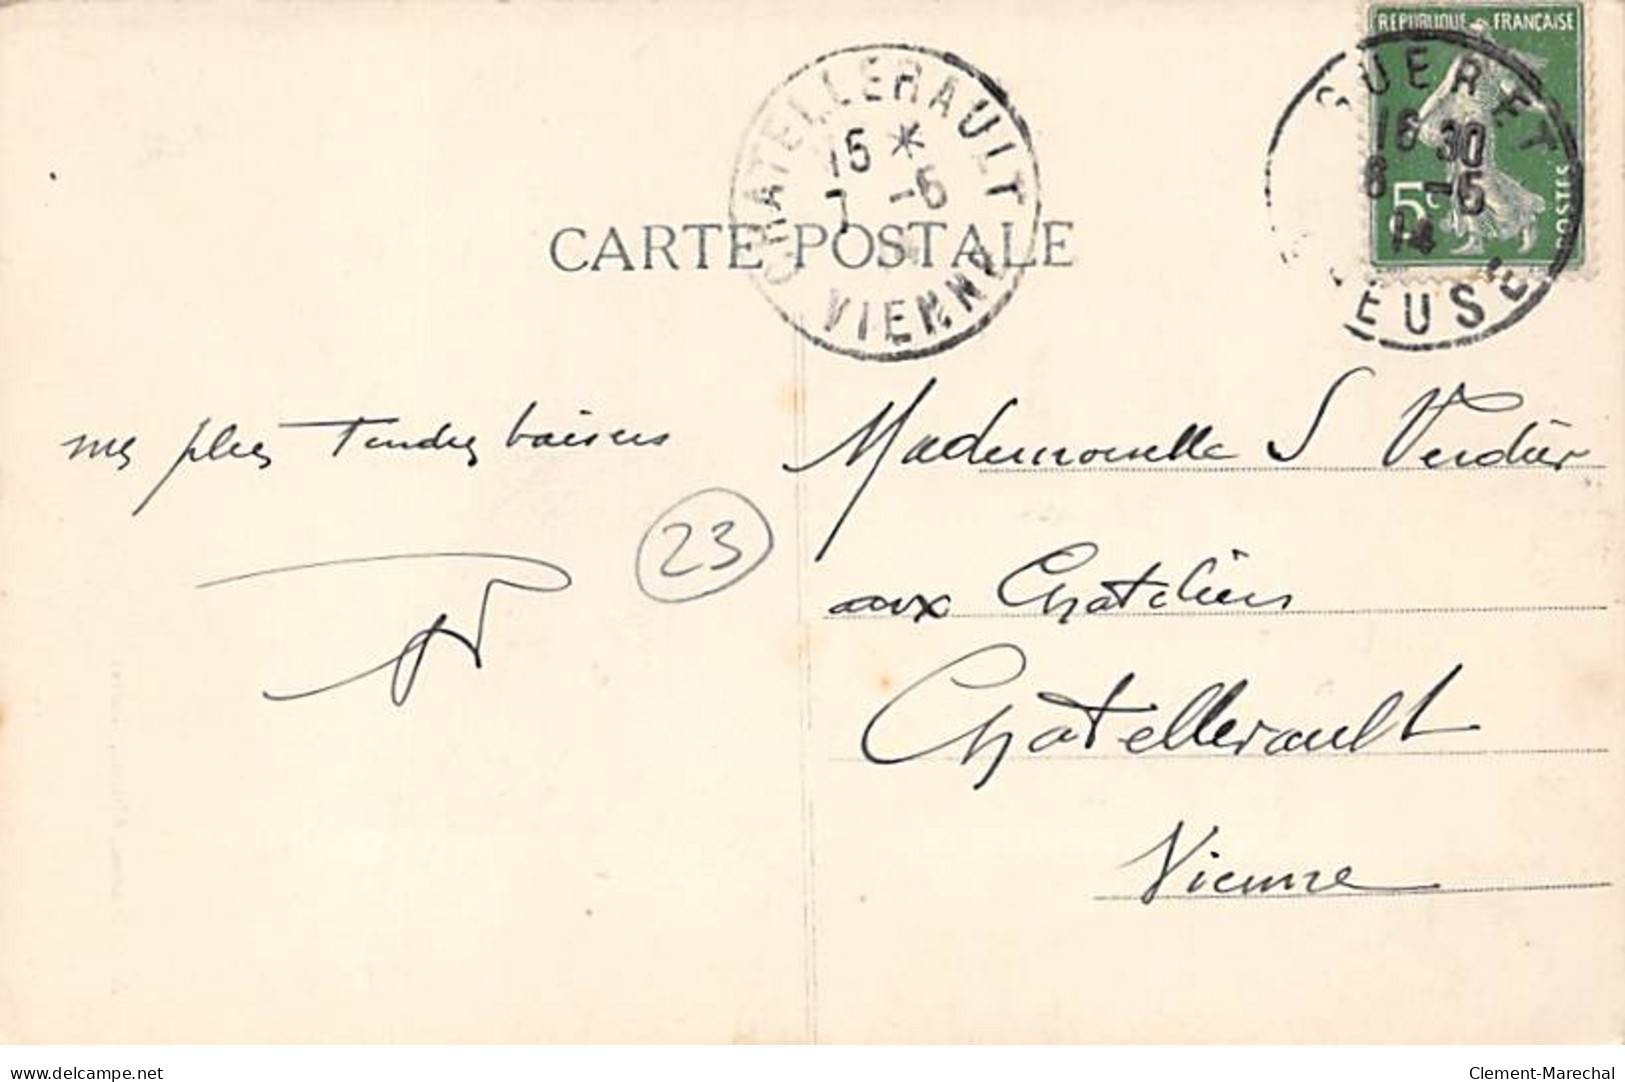 REPUBLIQUE FRANÇAISE
5c
POSTES
GUERET
16 30
6 -5
14
CREUSE
CHATELLERAULT
15 *
7 -5
VIENNE
CARTE POSTALE
mes plus Tendres baisers
23
Mademoiselle S Verdier
aux Chateliers
Chatellerault
Vienne
delcampe.net
Clement-Marechal